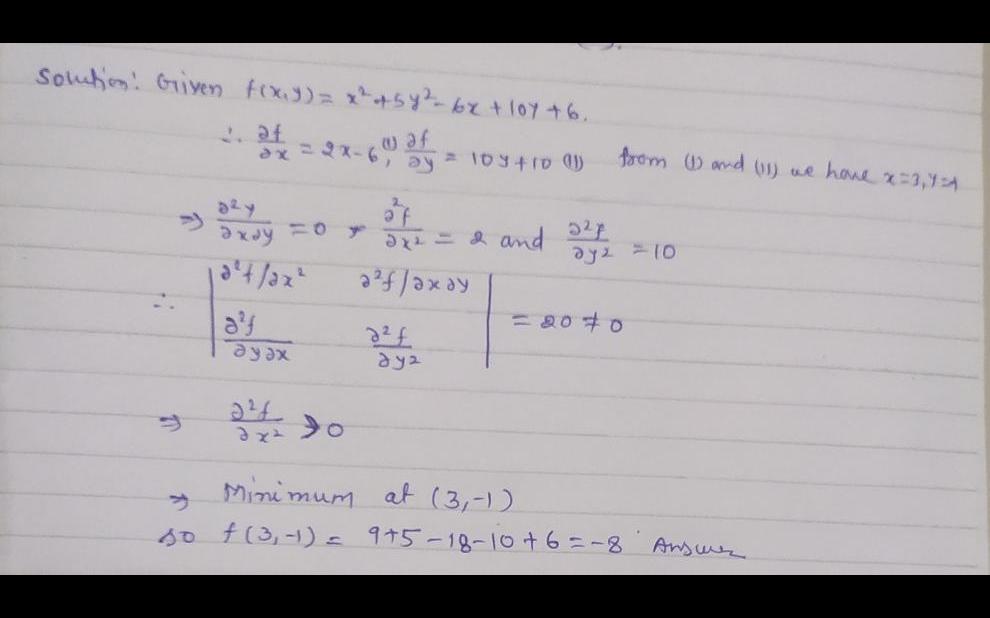 Solution: Given f(x,y) = x² + 5y² - 6x + 10y + 6.
∴ ∂f/∂x = 2x - 6 (I), ∂f/∂y = 10y + 10 (II) from (I) and (II) we have x=3, y=-1
⇒ ∂²y/∂x∂y = 0, ∂²f/∂x² = 2 and ∂²f/∂y² = 10
∴ | ∂²f/∂x² ∂²f/∂x∂y |
| ∂²f/∂y∂x ∂²f/∂y² | = 20 ≠ 0
⇒ ∂²f/∂x² > 0
⇒ Minimum at (3,-1)
so f(3,-1) = 9+5-18-10+6 = -8 Answer